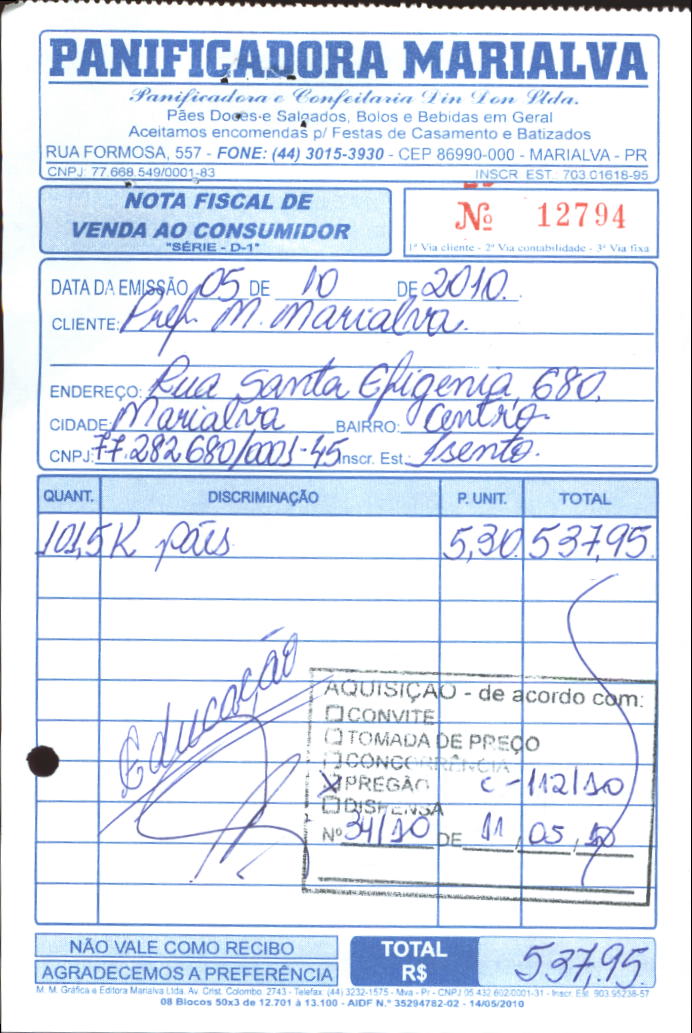 PANIFICADORA MARIALVA
Panificadora e Confeitaria Din Don Ltda.
Pães Doces e Salgados, Bolos e Bebidas em Geral
Aceitamos encomendas p/ Festas de Casamento e Batizados
RUA FORMOSA, 557 - FONE: (44) 3015-3930 - CEP 86990-000 - MARIALVA - PR
CNPJ: 77.668.549/0001-83 INSCR. EST.: 703.01618-95
NOTA FISCAL DE
VENDA AO CONSUMIDOR
"SÉRIE - D-1"
Nº 12794
1ª Via cliente - 2ª Via contabilidade - 3ª Via fixa
DATA DA EMISSÃO 05 DE 10 DE 2010.
CLIENTE: Pref. M. Marialva.
ENDEREÇO: Rua Santa Efigenia, 680.
CIDADE: Marialva BAIRRO: Centro.
CNPJ: 77.282.680/0001-45 Inscr. Est.: Isento.
QUANT. DISCRIMINAÇÃO P. UNIT. TOTAL
101,5 K pães 5,30 537,95.
Educação
AQUISIÇÃO - de acordo com:
CONVITE
TOMADA DE PREÇO
CONCORRÊNCIA
PREGÃO C-112/10
DISPENSA
Nº 34/10 DE 11, 05, 10
NÃO VALE COMO RECIBO
AGRADECEMOS A PREFERÊNCIA
TOTAL
R$
537,95.
M. M. Gráfica e Editora Marialva Ltda. Av. Crist. Colombo 2743 - Telefax (44) 3232-1575 - Mva - Pr - CNPJ 05.432.602/0001-31 - Inscr. Est. 903.95238-57
08 Blocos 50x3 de 12.701 à 13.100 - AIDF N.º 35294782-02 - 14/05/2010